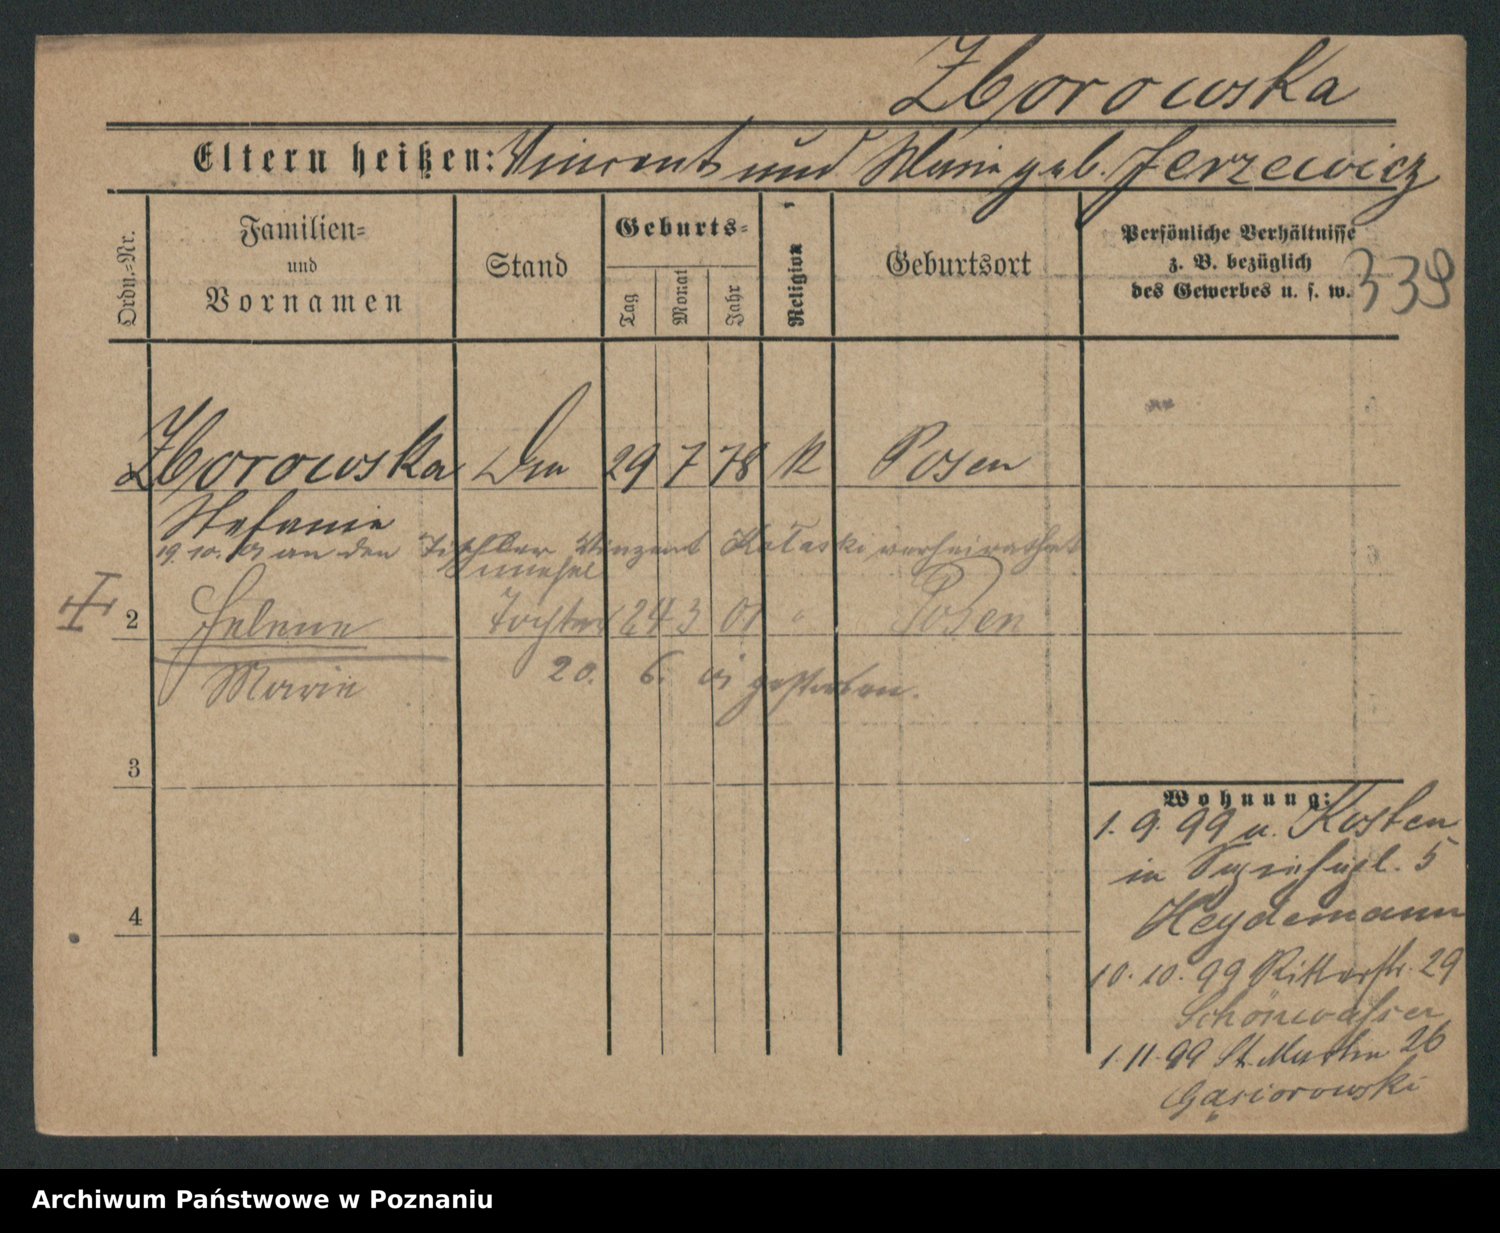 Zborowska
Eltern heißen: Vincent und Marie geb. Jerzewicz
Ordn.-Nr.
Familien-
und
Vornamen
Stand
Geburts-
Tag
Monat
Jahr
Religion
Geburtsort
Persönliche Verhältnisse
z. B. bezüglich
des Gewerbes u. s. w.
339
Zborowska 29 7 78 K Posen
Stefanie
19. 10. an den Tischler Vinzent verheirathet
unehel
2 Helene Tochter 24 3 01 " Posen
Marie 20. 6. 01 gestorben.
3
4
Wohnung:
1. 9. 99 a. Kosten
in 5
Heydemann
10. 10. 99 Ritterstr. 29
Schönwasser
1. 11. 99 St. Martin 26
Gąsiorowski
Archiwum Państwowe w Poznaniu